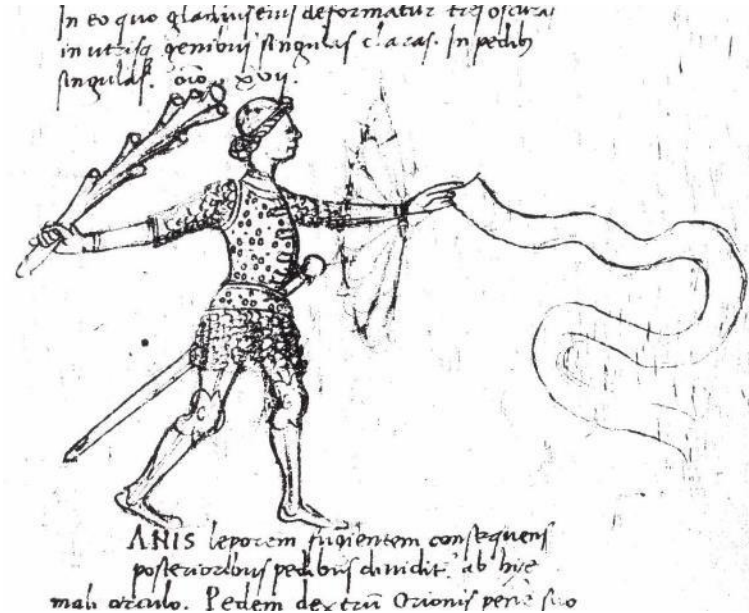 In eo quo gladius eius deformatur tres oscuras
in utrisq genibus singulas claras. In pedib
singulas. oīo. xvii.
ANIS leporem fugientem consequens
posterioribus pedibus dividit. ab hye
mali circulo. Pedem dextrū Orionis pene suo